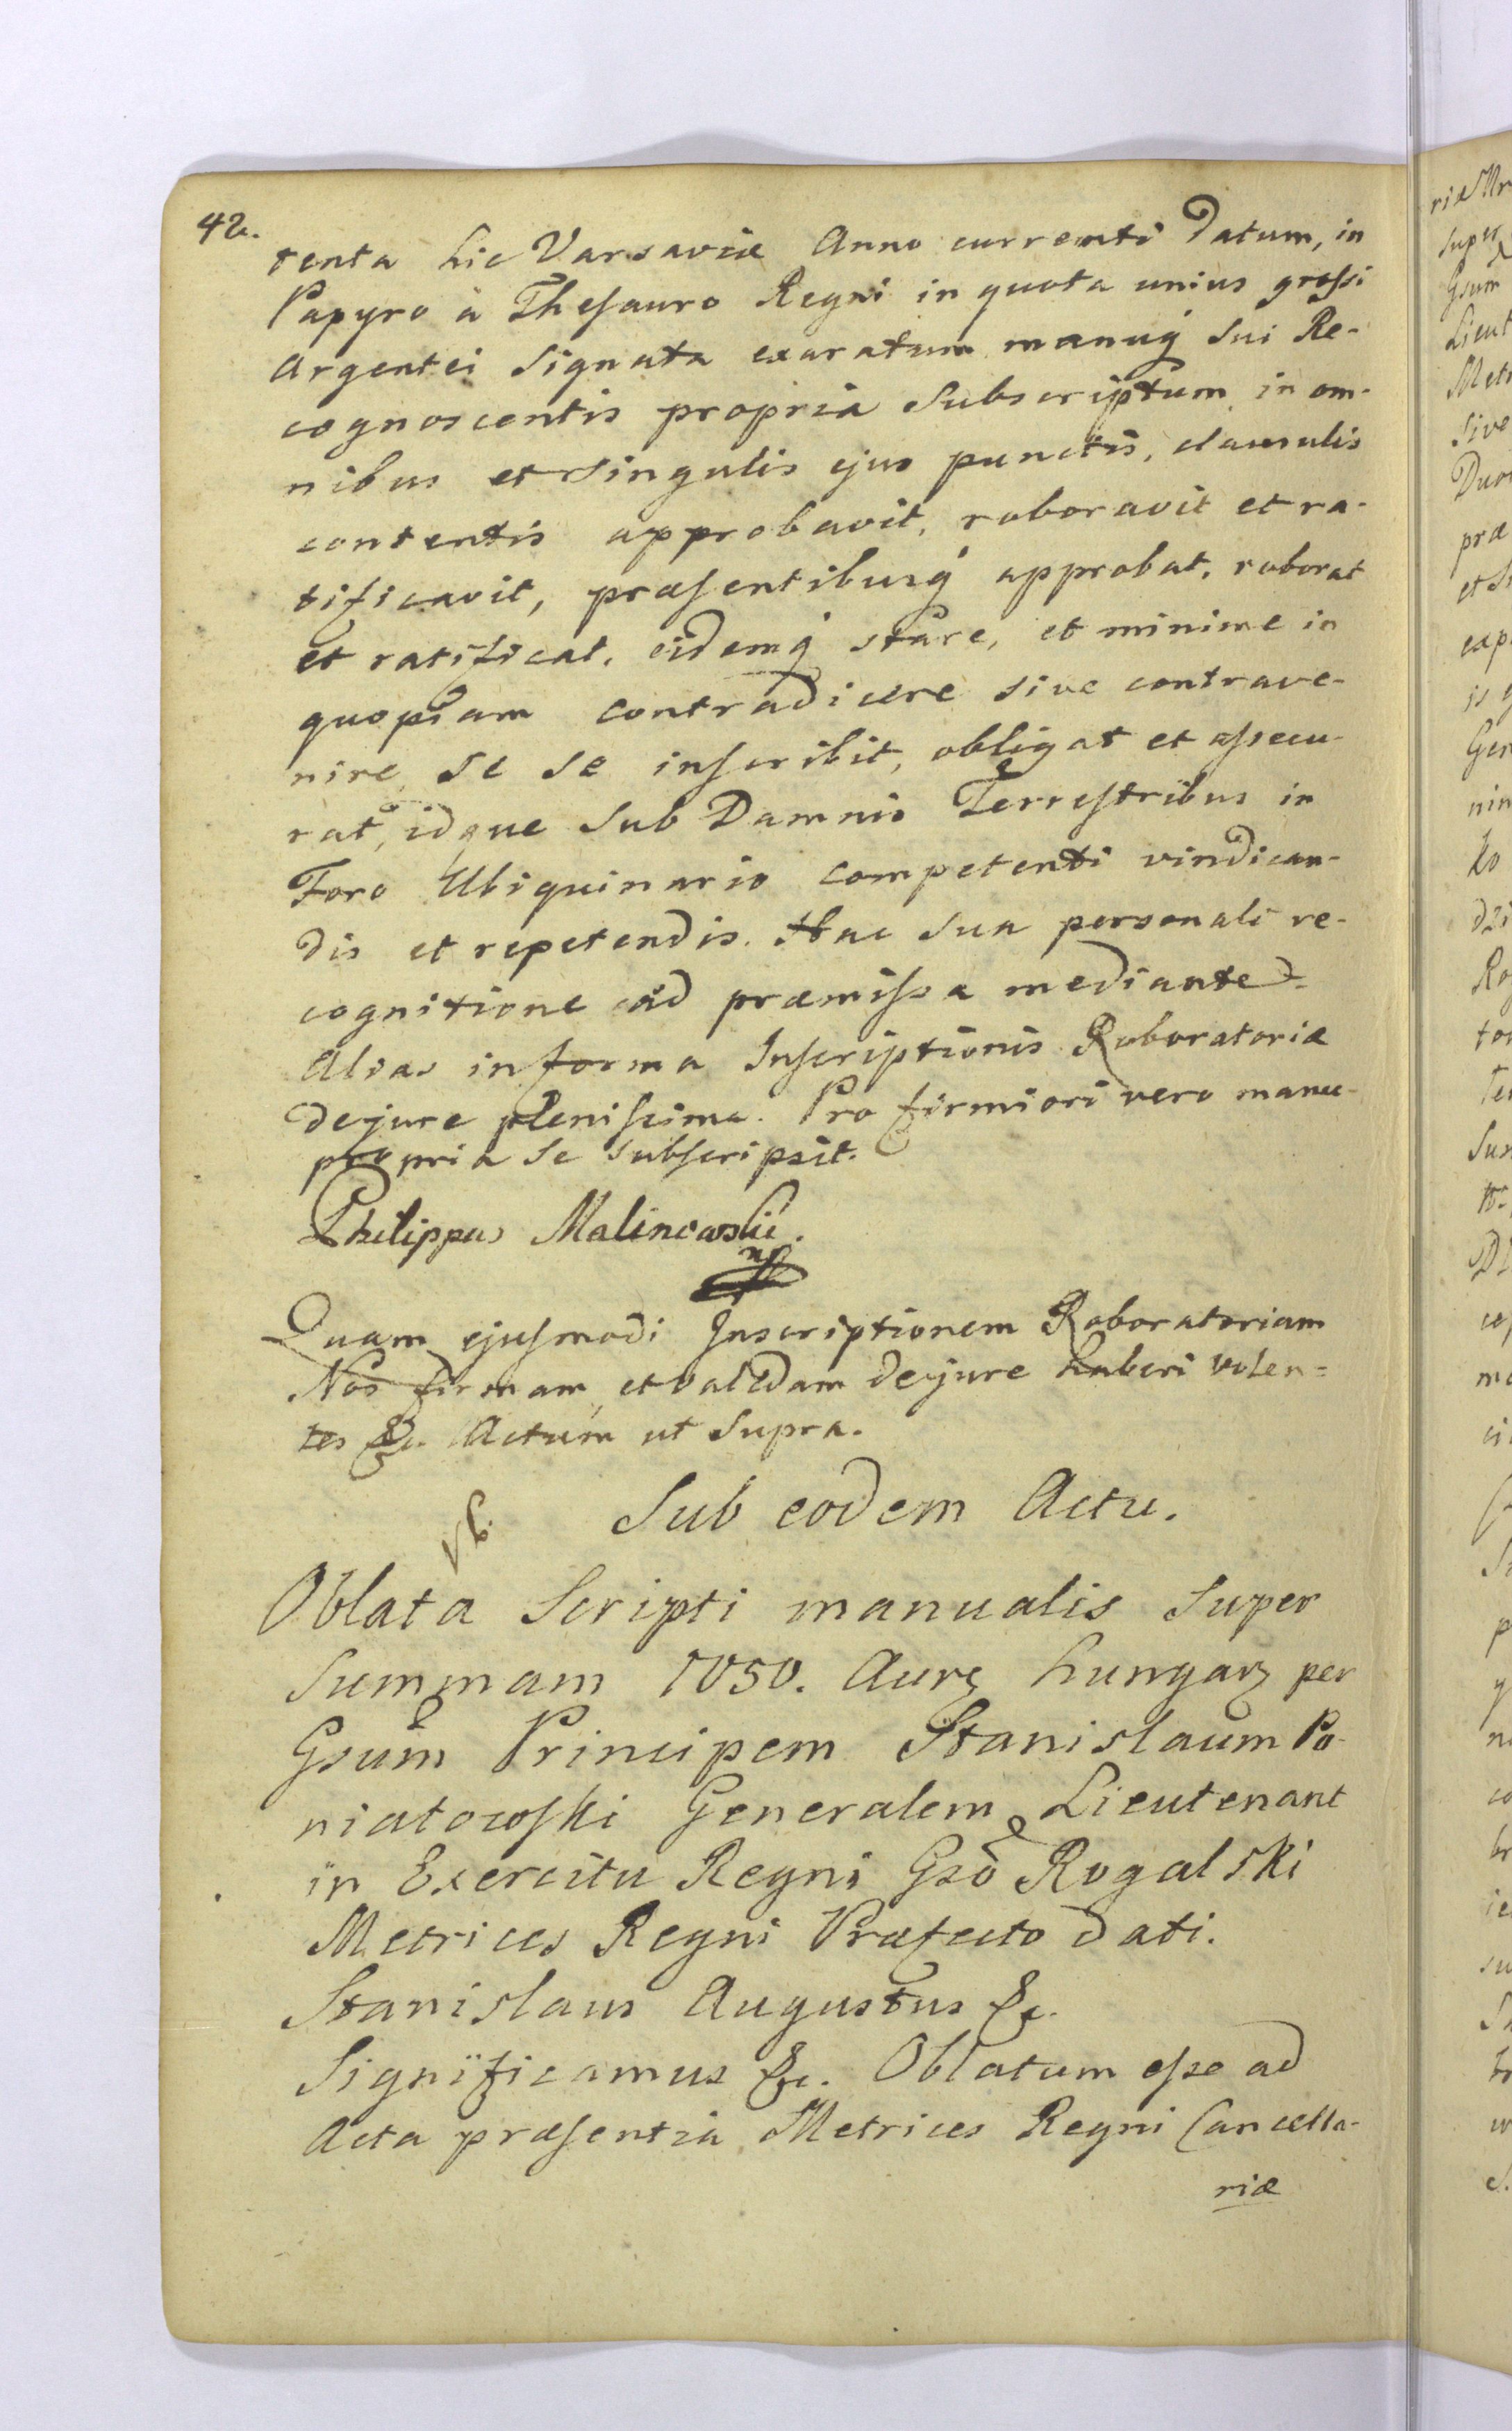 42.
tenta hic Varsaviæ Anno currenti Datum, in
Papyro à Thesauro Regni in quota unius grossi
Argentei Signata exaratum manuq́ sui Re-
cognoscentis propria Subscriptum in om-
nibus et singulis ejus punctis, clausulis
contentis approbavit, roboravit et ra-
tificavit, præsentibusq́ approbat, roborat
et ratificat, eidemq́ stare, et minime in
quopiam contradicere sive contrave-
nire, se se inscribit, obligat et assecu-
rat, idque sub Damnis Terrestribus in
Foro Ubiquinario competenti vindican-
dis et repetendis. Hac sua personali re-
cognitione ad præmissa mediante
Alias in forma Inscriptionis Roboratoriæ
dejure plenissima. Pro firmiori vero manu
propria se subscripsit.
Philippus Malinowski
mp
Quam ejusmodi Inscriptionem Roboratoriam
Nos firmam, et validam dejure haberi volen=
tes &c. Actum ut Supra.
Sub eodem Actu.
Oblata Scripti manualis Super
Summam 1050. Aurꝫ hungarꝫ per
Gsum Principem Stanislaum Po-
niatowski Generalem Lieutenant
in Exercitu Regni Gso Rogalski
Metrices Regni Præfecto dati.
Stanislaus Augustus &c.
Significamus &c. Oblatum esse ad
Acta præsentia Metrices Regni Cancella-
riæ